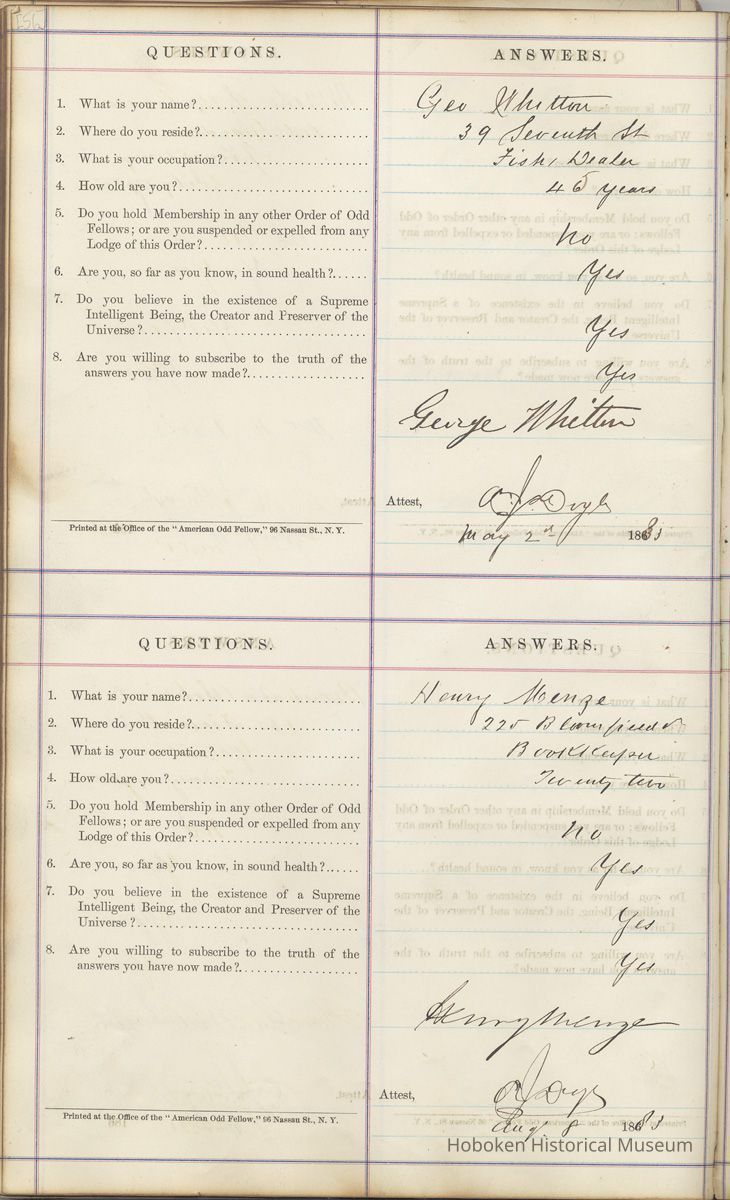 QUESTIONS. ANSWERS.
1. What is your name? Geo Whitton
2. Where do you reside? 39 Seventh St
3. What is your occupation? Fish Dealer
4. How old are you? 45 years
5. Do you hold Membership in any other Order of Odd
Fellows; or are you suspended or expelled from any
Lodge of this Order? No
6. Are you, so far as you know, in sound health? Yes
7. Do you believe in the existence of a Supreme
Intelligent Being, the Creator and Preserver of the
Universe? Yes
8. Are you willing to subscribe to the truth of the
answers you have now made? Yes
George Whitton
Attest, A. J. Doyle
Printed at the Office of the "American Odd Fellow," 96 Nassau St., N. Y.
May 2nd 1883
QUESTIONS. ANSWERS.
1. What is your name? Henry Menze
2. Where do you reside? 225 Bloomfield St
3. What is your occupation? Bookkeeper
4. How old are you? Twenty two
5. Do you hold Membership in any other Order of Odd
Fellows; or are you suspended or expelled from any
Lodge of this Order? No
6. Are you, so far as you know, in sound health? Yes
7. Do you believe in the existence of a Supreme
Intelligent Being, the Creator and Preserver of the
Universe? Yes
8. Are you willing to subscribe to the truth of the
answers you have now made? Yes
Henry Menze
Attest, A. J. Doyle
Printed at the Office of the "American Odd Fellow," 96 Nassau St., N. Y.
Aug 8 1883
Hoboken Historical Museum